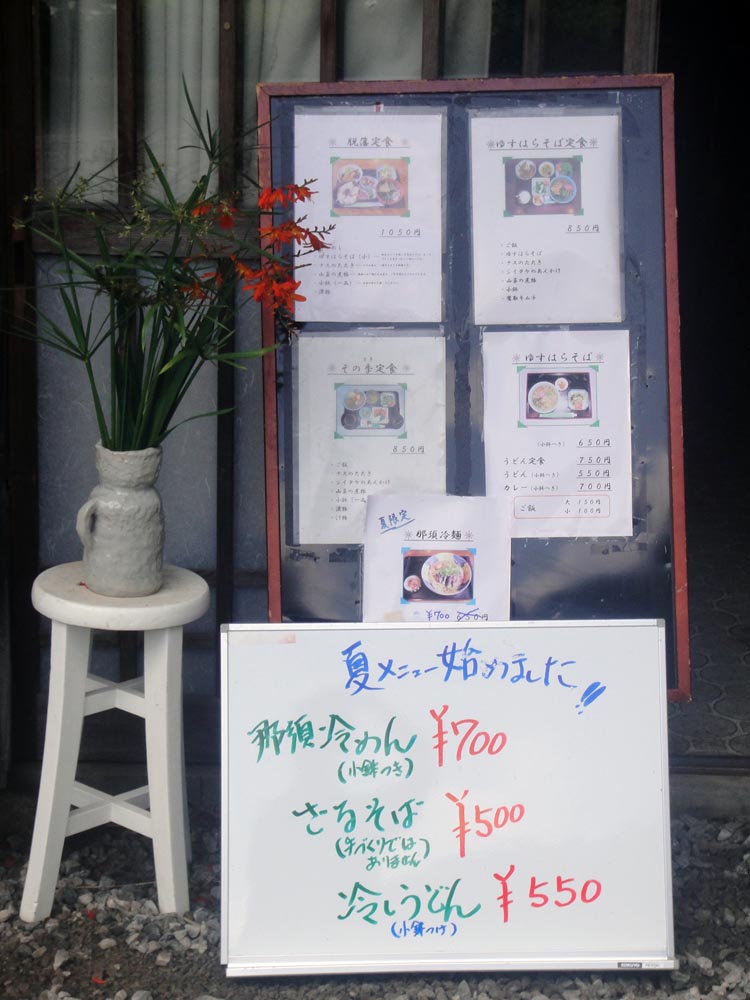 ※脱藩定食※
1050円
ゆすはらそば(小)
ナスのたたき
山菜の煮物
小鉢(一品)
漬物
※ゆすはらそば定食※
850円
・ご飯
・ゆすはらそば
・ナスのたたき
・シイタケのあんかけ
・山菜の煮物
・小鉢
※その季定食※
850円
・ご飯
・ナスのたたき
・シイタケのあんかけ
・山菜の煮物
・小鉢(一品)
・漬物
・汁物
※ゆすはらそば※
(小鉢つき) 650円
うどん定食 750円
うどん(小鉢つき) 550円
カレー(小鉢つき) 700円
ご飯 大 150円
小 100円
夏限定
※那須冷麺※
¥700
夏メニュー始めました!!
那須冷めん ¥700
(小鉢つき)
ざるそば ¥500
(手づくりでは
ありません)
冷しうどん ¥550
(小鉢つけ)
KOKUYO